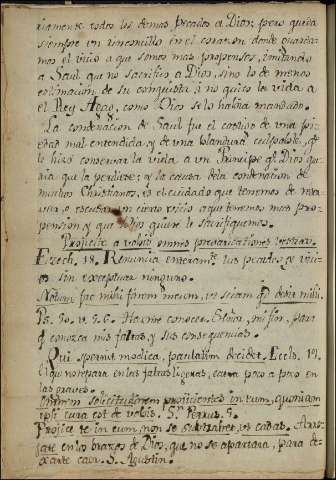 riamente todos los demas pecados a Dios; pero queda
siempre un rinconcillo en el corazon donde guarda-
mos el vicio a que somos mas propensos, imitando
a Saul, que no sacrifico a Dios, sino lo de menos
estimacion de su conquista, y no quito la vida a
el Rey Agag, como Dios se lo había mandado.
La condenacion de Saul fue el castigo de una pie-
dad mal entendida, y de una blandura culpable, qe
le hizo conservar la vida a un Principe qe Dios que
ria que la perdiese; y la causa de la condenacion de
muchos Christianos, es el cuidado que tenemos de
o escusar un cierto vicio a que tenemos mas pro-
pension, y que Dios quiere le sacrifiquemos.
Projicite a vobis omnes praevaricationes vestras.
Ezech. 18. Renuncia enteramte. tus pecados, y vici-
os sin exceptuar ninguno.
Notum fac mihi finem meum, ut sciam qd desit mihi.
Ps. Hazme conocer, Señor, mi fin, para
qe conozca mis faltas, y sus consequencias.
Qui spernit modica, paulatim decidet. Eccls. 19.
El que no repara en las faltas ligeras, caera poco a poco en
las graves.
Omnem solicitudinem projicientes in eum, quoniam
ipsi cura est de vobis. Sn. Petrus. 5.
Projice te in eum, non se subtrahet, ut cadas. Arro-
jate en los brazos de Dios, que no se apartara, para de-
xarte caer. S. Agustin.